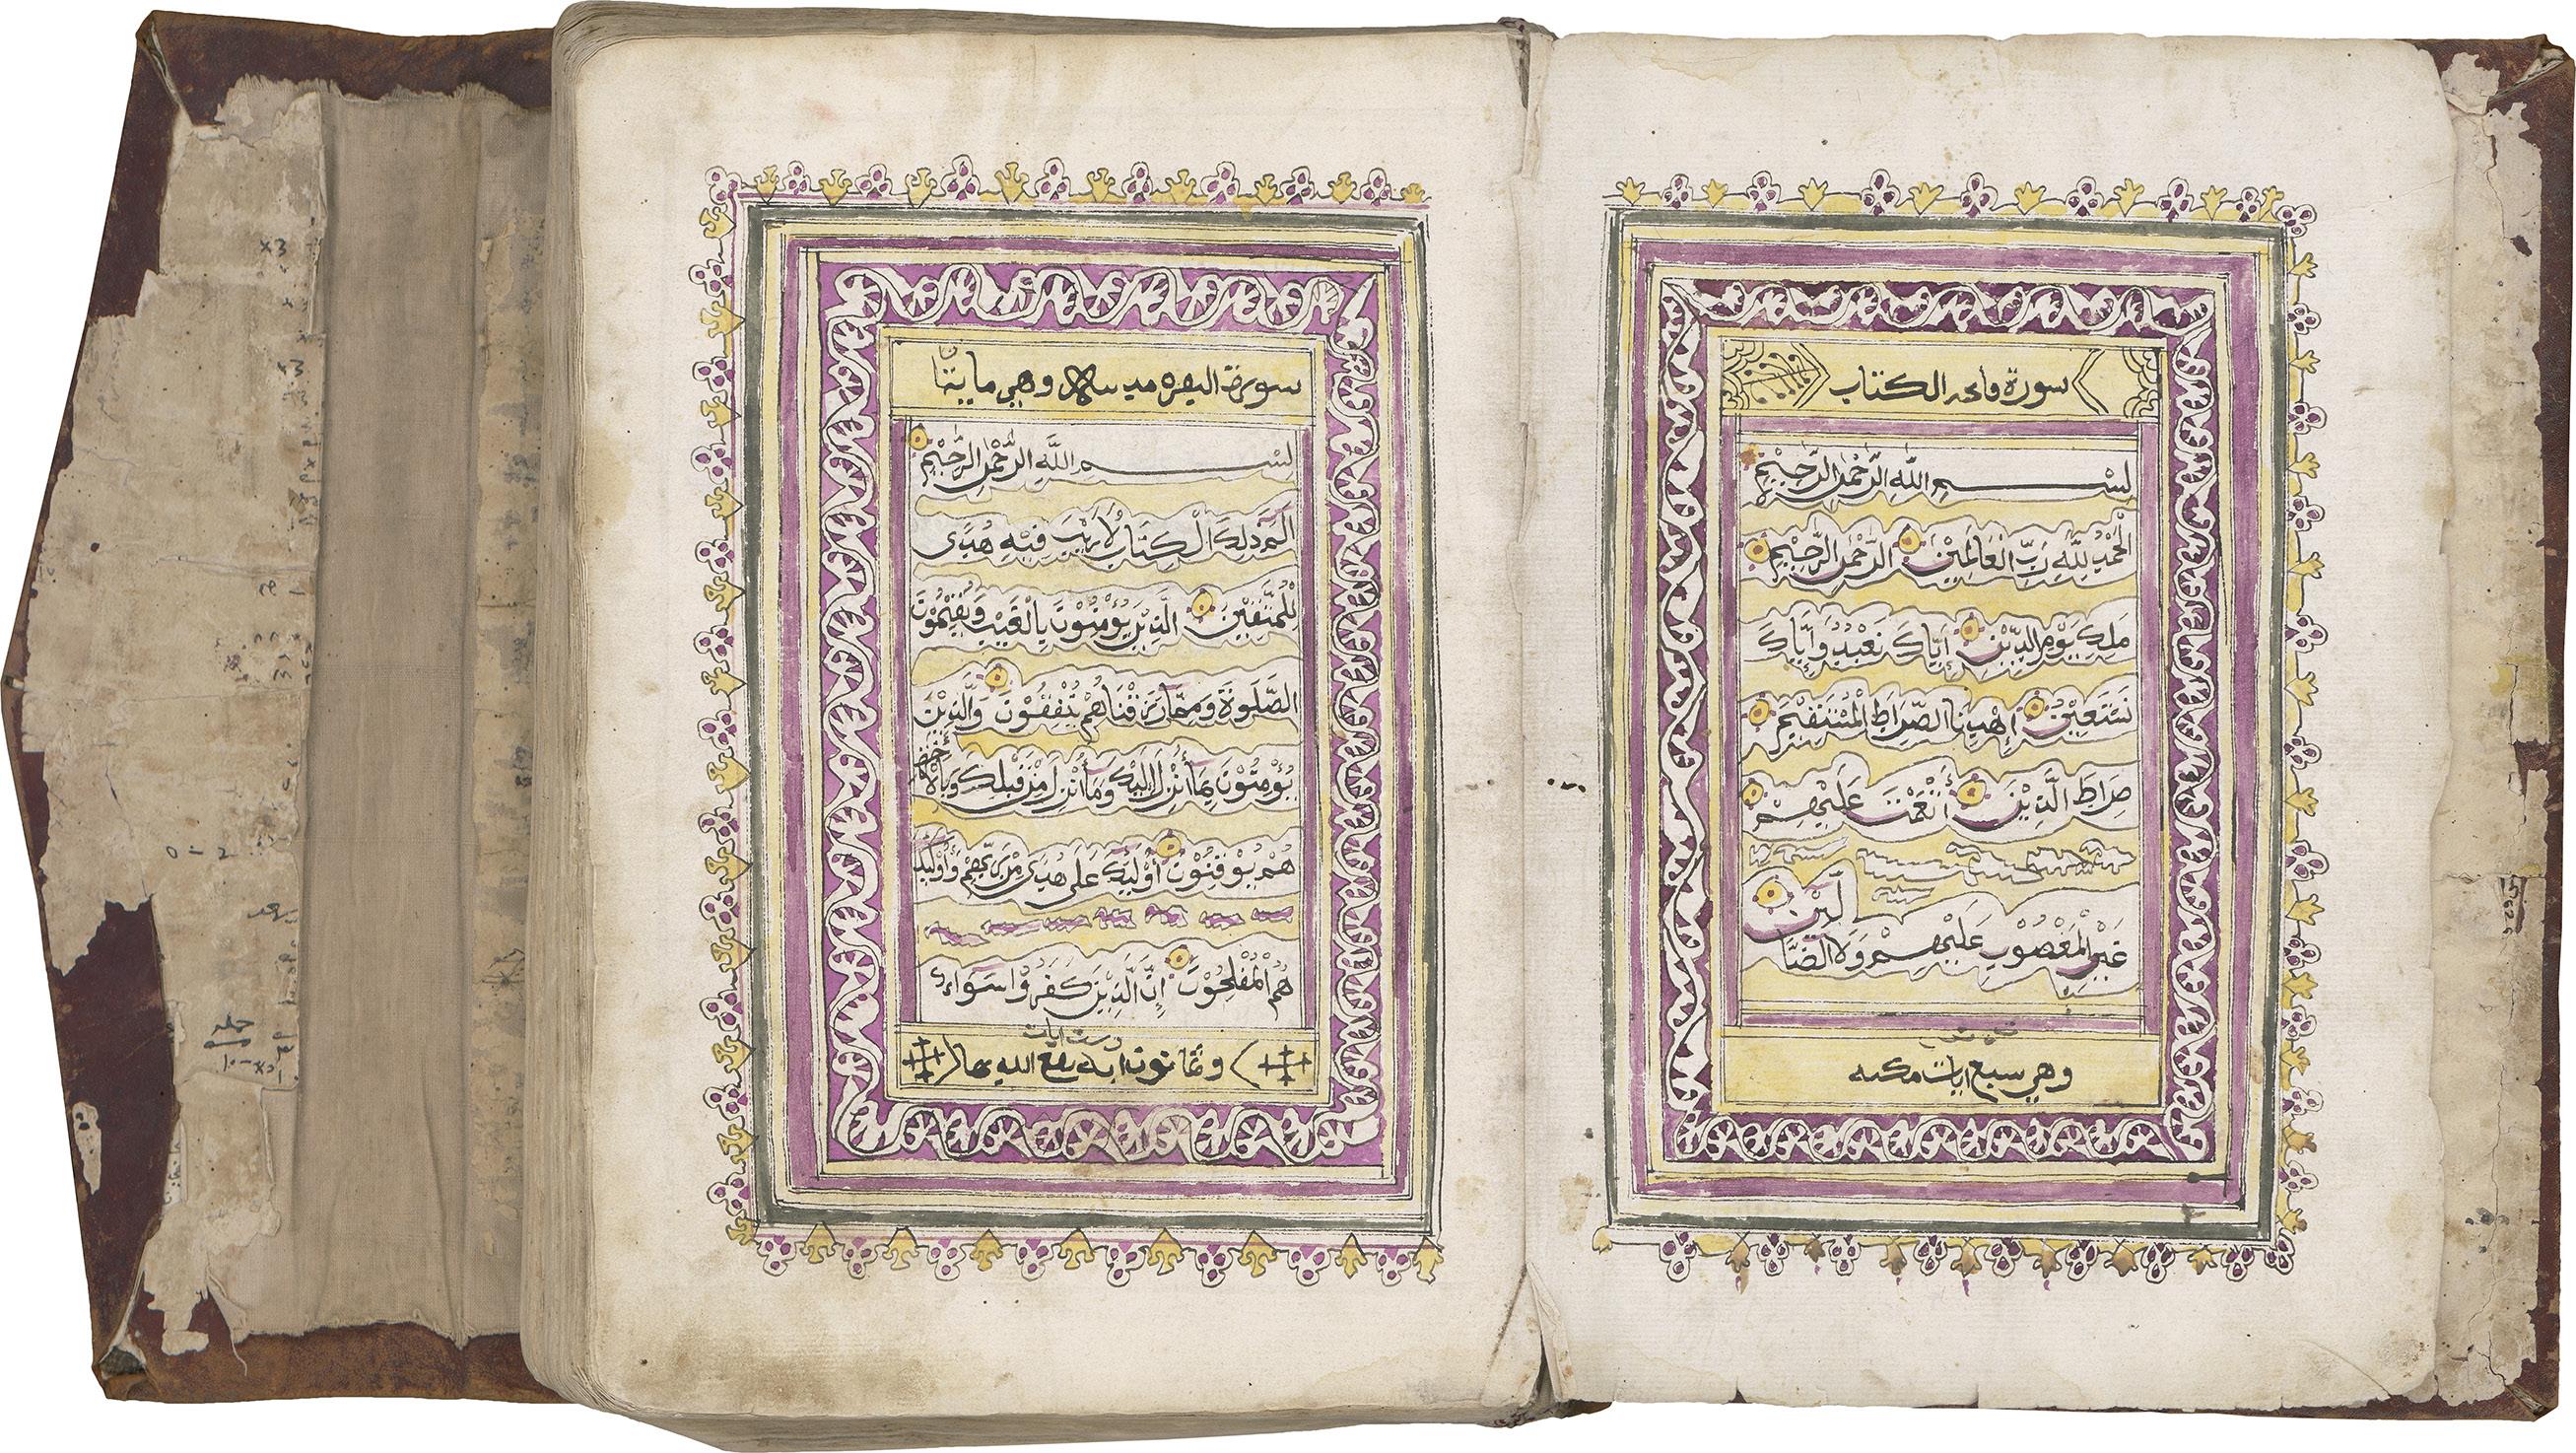 سورة فاتحه الكتاب
بِسْمِ اللَّهِ الرَّحْمٰنِ الرَّحِيْمِ
اَلْحَمْدُ لِلّٰهِ رَبِّ الْعَالَمِيْنَ الرَّحْمٰنِ الرَّحِيْمِ
مَلِكِ يَوْمِ الدِّيْنِ إِيَّاكَ نَعْبُدُ وَإِيَّاكَ
نَسْتَعِيْنُ إِهْدِنَا الصِّرَاطَ الْمُسْتَقِيْمَ
صِرَاطَ الَّذِيْنَ أَنْعَمْتَ عَلَيْهِمْ
غَيْرِ الْمَغْضُوْبِ عَلَيْهِمْ وَلَا الضَّا
لِّيْنَ
وهي سبع ايات مكيه
سورة البقره مدنيه وهي مايتا
بِسْمِ اللَّهِ الرَّحْمٰنِ الرَّحِيْمِ
الٓمٓ ذٰلِكَ الْكِتَابُ لَا رَيْبَ فِيْهِ هُدًى
لِلْمُتَّقِيْنَ الَّذِيْنَ يُؤْمِنُوْنَ بِالْغَيْبِ وَيُقِيْمُوْنَ
الصَّلٰوةَ وَمِمَّا رَزَقْنَاهُمْ يُنْفِقُوْنَ وَالَّذِيْنَ
يُؤْمِنُوْنَ بِمَا أُنْزِلَ إِلَيْكَ وَمَا أُنْزِلَ مِنْ قَبْلِكَ وَبِالْاٰخِرَةِ
هُمْ يُوْقِنُوْنَ أُوْلٰئِكَ عَلٰى هُدًى مِنْ رَبِّهِمْ وَأُوْلٰئِكَ
هُمُ الْمُفْلِحُوْنَ إِنَّ الَّذِيْنَ كَفَرُوْا سَوَاءٌ
وست ايات
وثمانون ايه نفع الله بها